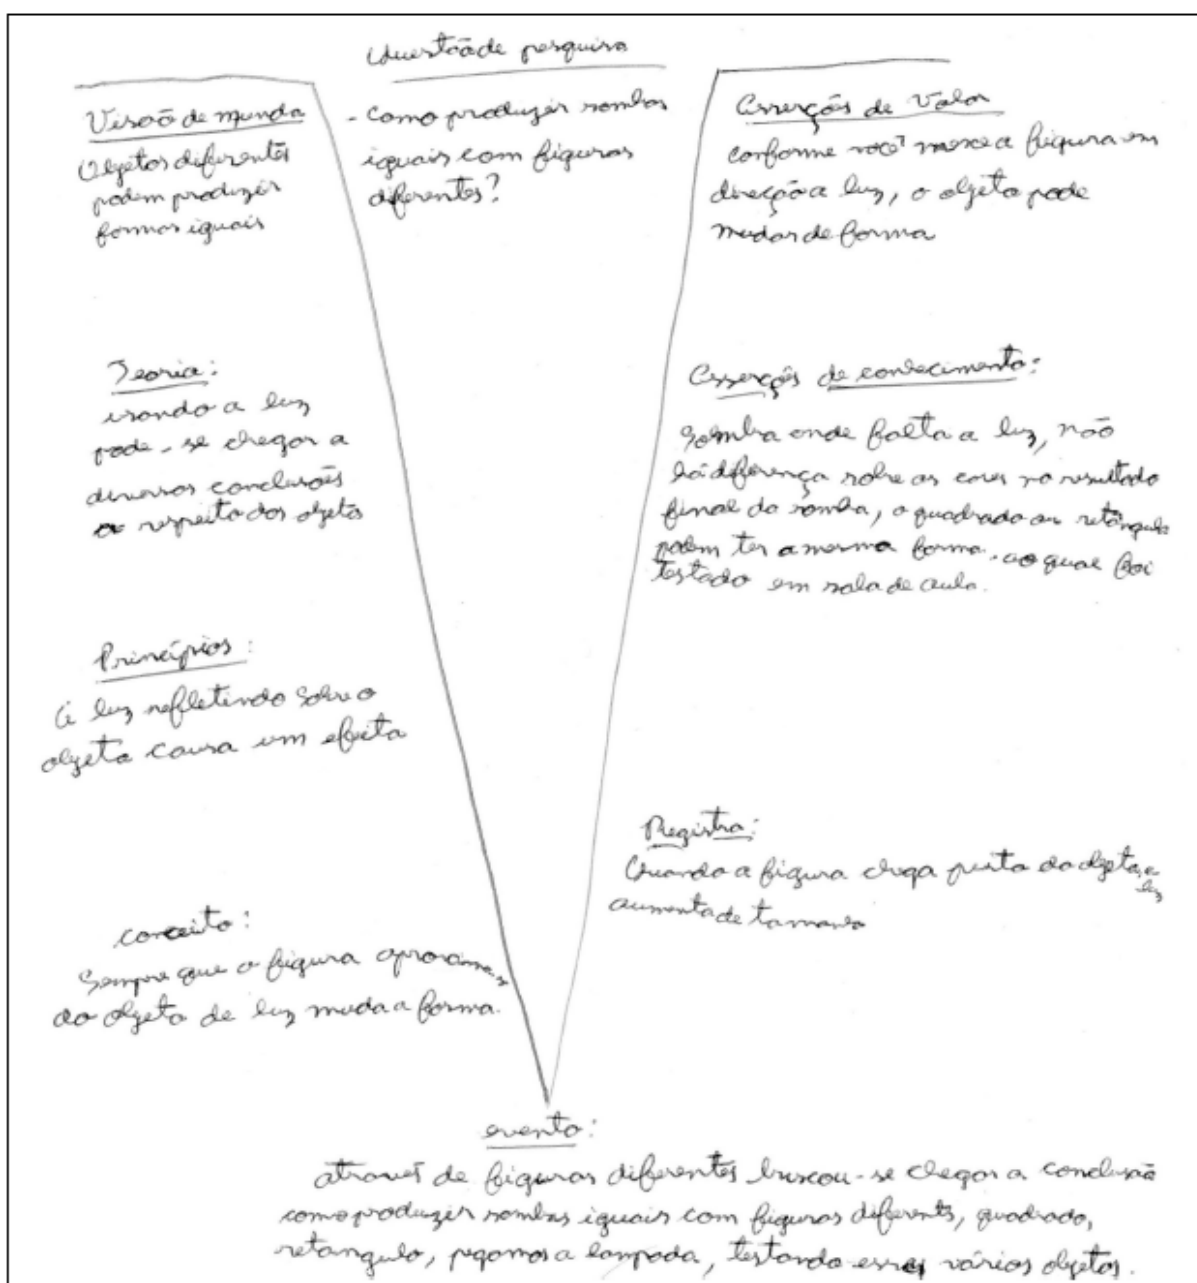 Questão de pesquisa
- Como produzir sombras
iguais com figuras
diferentes?
Visão de mundo
Objetos diferentes
podem produzir
formas iguais
Teoria:
usando a luz
pode-se chegar a
diversas conclusões
a respeito dos objetos
Princípios:
A luz refletindo sobre o
objeto causa um efeito
conceito:
Sempre que a figura aproxima-se
do objeto de luz muda a forma.
Asserções de Valor
conforme você mexe a figura em
direção a luz, o objeto pode
mudar de forma
Asserções de conhecimento:
Sombra onde falta a luz, não
há diferença sobre as cores no resultado
final da sombra, o quadrado ou retângulo
podem ter a mesma forma. ao qual foi
testado em sala de aula.
Registro:
Quando a figura chega perto do objeto, a luz
aumenta de tamanho
evento:
através de figuras diferentes buscou-se chegar a conclusão
como produzir sombras iguais com figuras diferents, quadrado,
retangulo, pegamos a lampada, testando esses vários objetos.